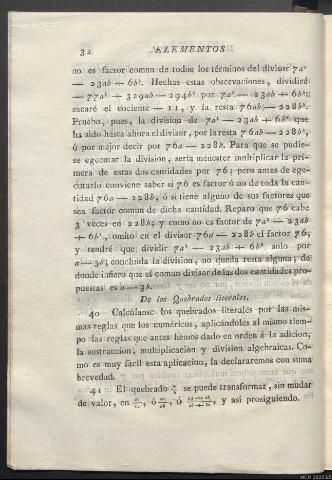 32 ELEMENTOS
no es factor comun de todos los términos del divisor 7a²
— 23ab + 6b². Hechas estas observaciones, dividiré
— 77a² + 329ab — 294b² por 7a² — 23ab + 6b²;
sacaré el cociente — 11, y la resta 76ab — 228b².
Pruebo, pues, la division de 7a² — 23ab + 6b² que
ha sido hasta ahora el divisor, por la resta 76ab — 228b²,
ó por mejor decir por 76a — 228b. Para que se pudie-
se egecutar la division, sería menester multiplicar la pri-
mera de estas dos cantidades por 76; pero antes de ege-
cutarlo conviene saber si 76 es factor ó no de toda la can-
tidad 76a — 228b, ó si tiene alguno de sus factores que
sea factor comun de dicha cantidad. Reparo que 76 cabe
3 veces en 228b; y como no es factor de 7a² — 23ab
+ 6b², omito en el divisor 76a — 228b el factor 76;
y tendré que dividir 7a² — 23ab + 6b² solo por
a — 3b; concluida la division, no queda resta alguna; de
donde infiero que el comun divisor de las dos cantidades pro-
puestas es a — 3b.
De los Quebrados literales.
40 Calcúlanse los quebrados literales por las mis-
mas reglas que los numéricos, aplicándoles al mismo tiem-
po las reglas que antes hemos dado en órden á la adicion,
la sustraccion, multiplicacion y division algebraicas. Co-
mo es muy facil esta aplicacion, la declararemos con suma
brevedad.
41 El quebrado se puede transformar, sin mudar
de valor, en , ó , ó , y así prosiguiendo.